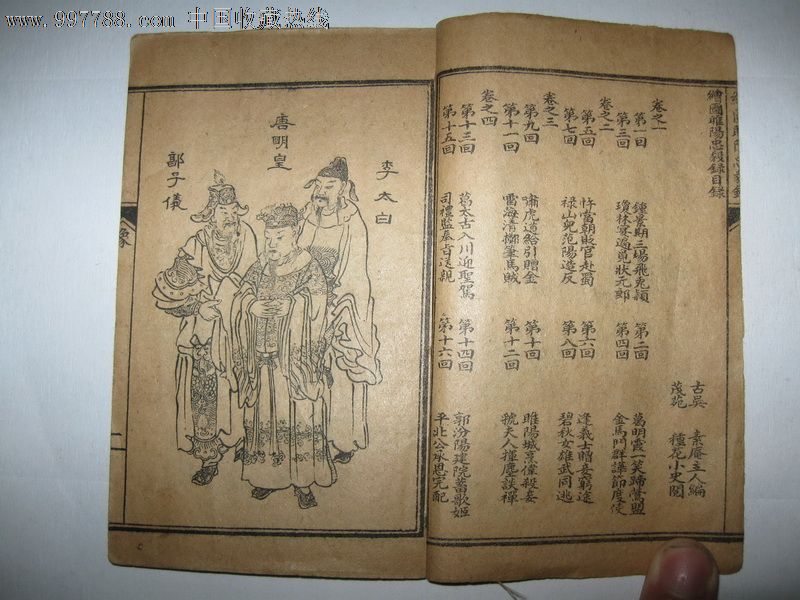 www.997788.com 中国收藏热线
繪圖睢陽忠毅錄目錄
古吳 素庵主人編
茂苑 種花小史閱
卷之一
第一回 鍾景期三場飛兔穎 第二回 葛明霞一笑締鸞盟
第三回 瓊林宴遍覓狀元郎 第四回 金馬門群譁節度使
卷之二
第五回 忤當朝貶官赴蜀 第六回 逢義士贈妾窮途
第七回 祿山兒范陽造反 第八回 碧秋女雄武同逃
卷之三
第九回 嘯虎道給引贈金 第十回 睢陽城烹僮殺妾
第十一回 雷海清擲箏罵賊 第十二回 虢夫人揮麈談禪
卷之四
第十三回 葛太古入川迎聖駕 第十四回 郭汾陽建院蓄歌姬
第十五回 司禮監奉旨送親 第十六回 平北公承恩完配
李太白
唐明皇
郭子儀
二